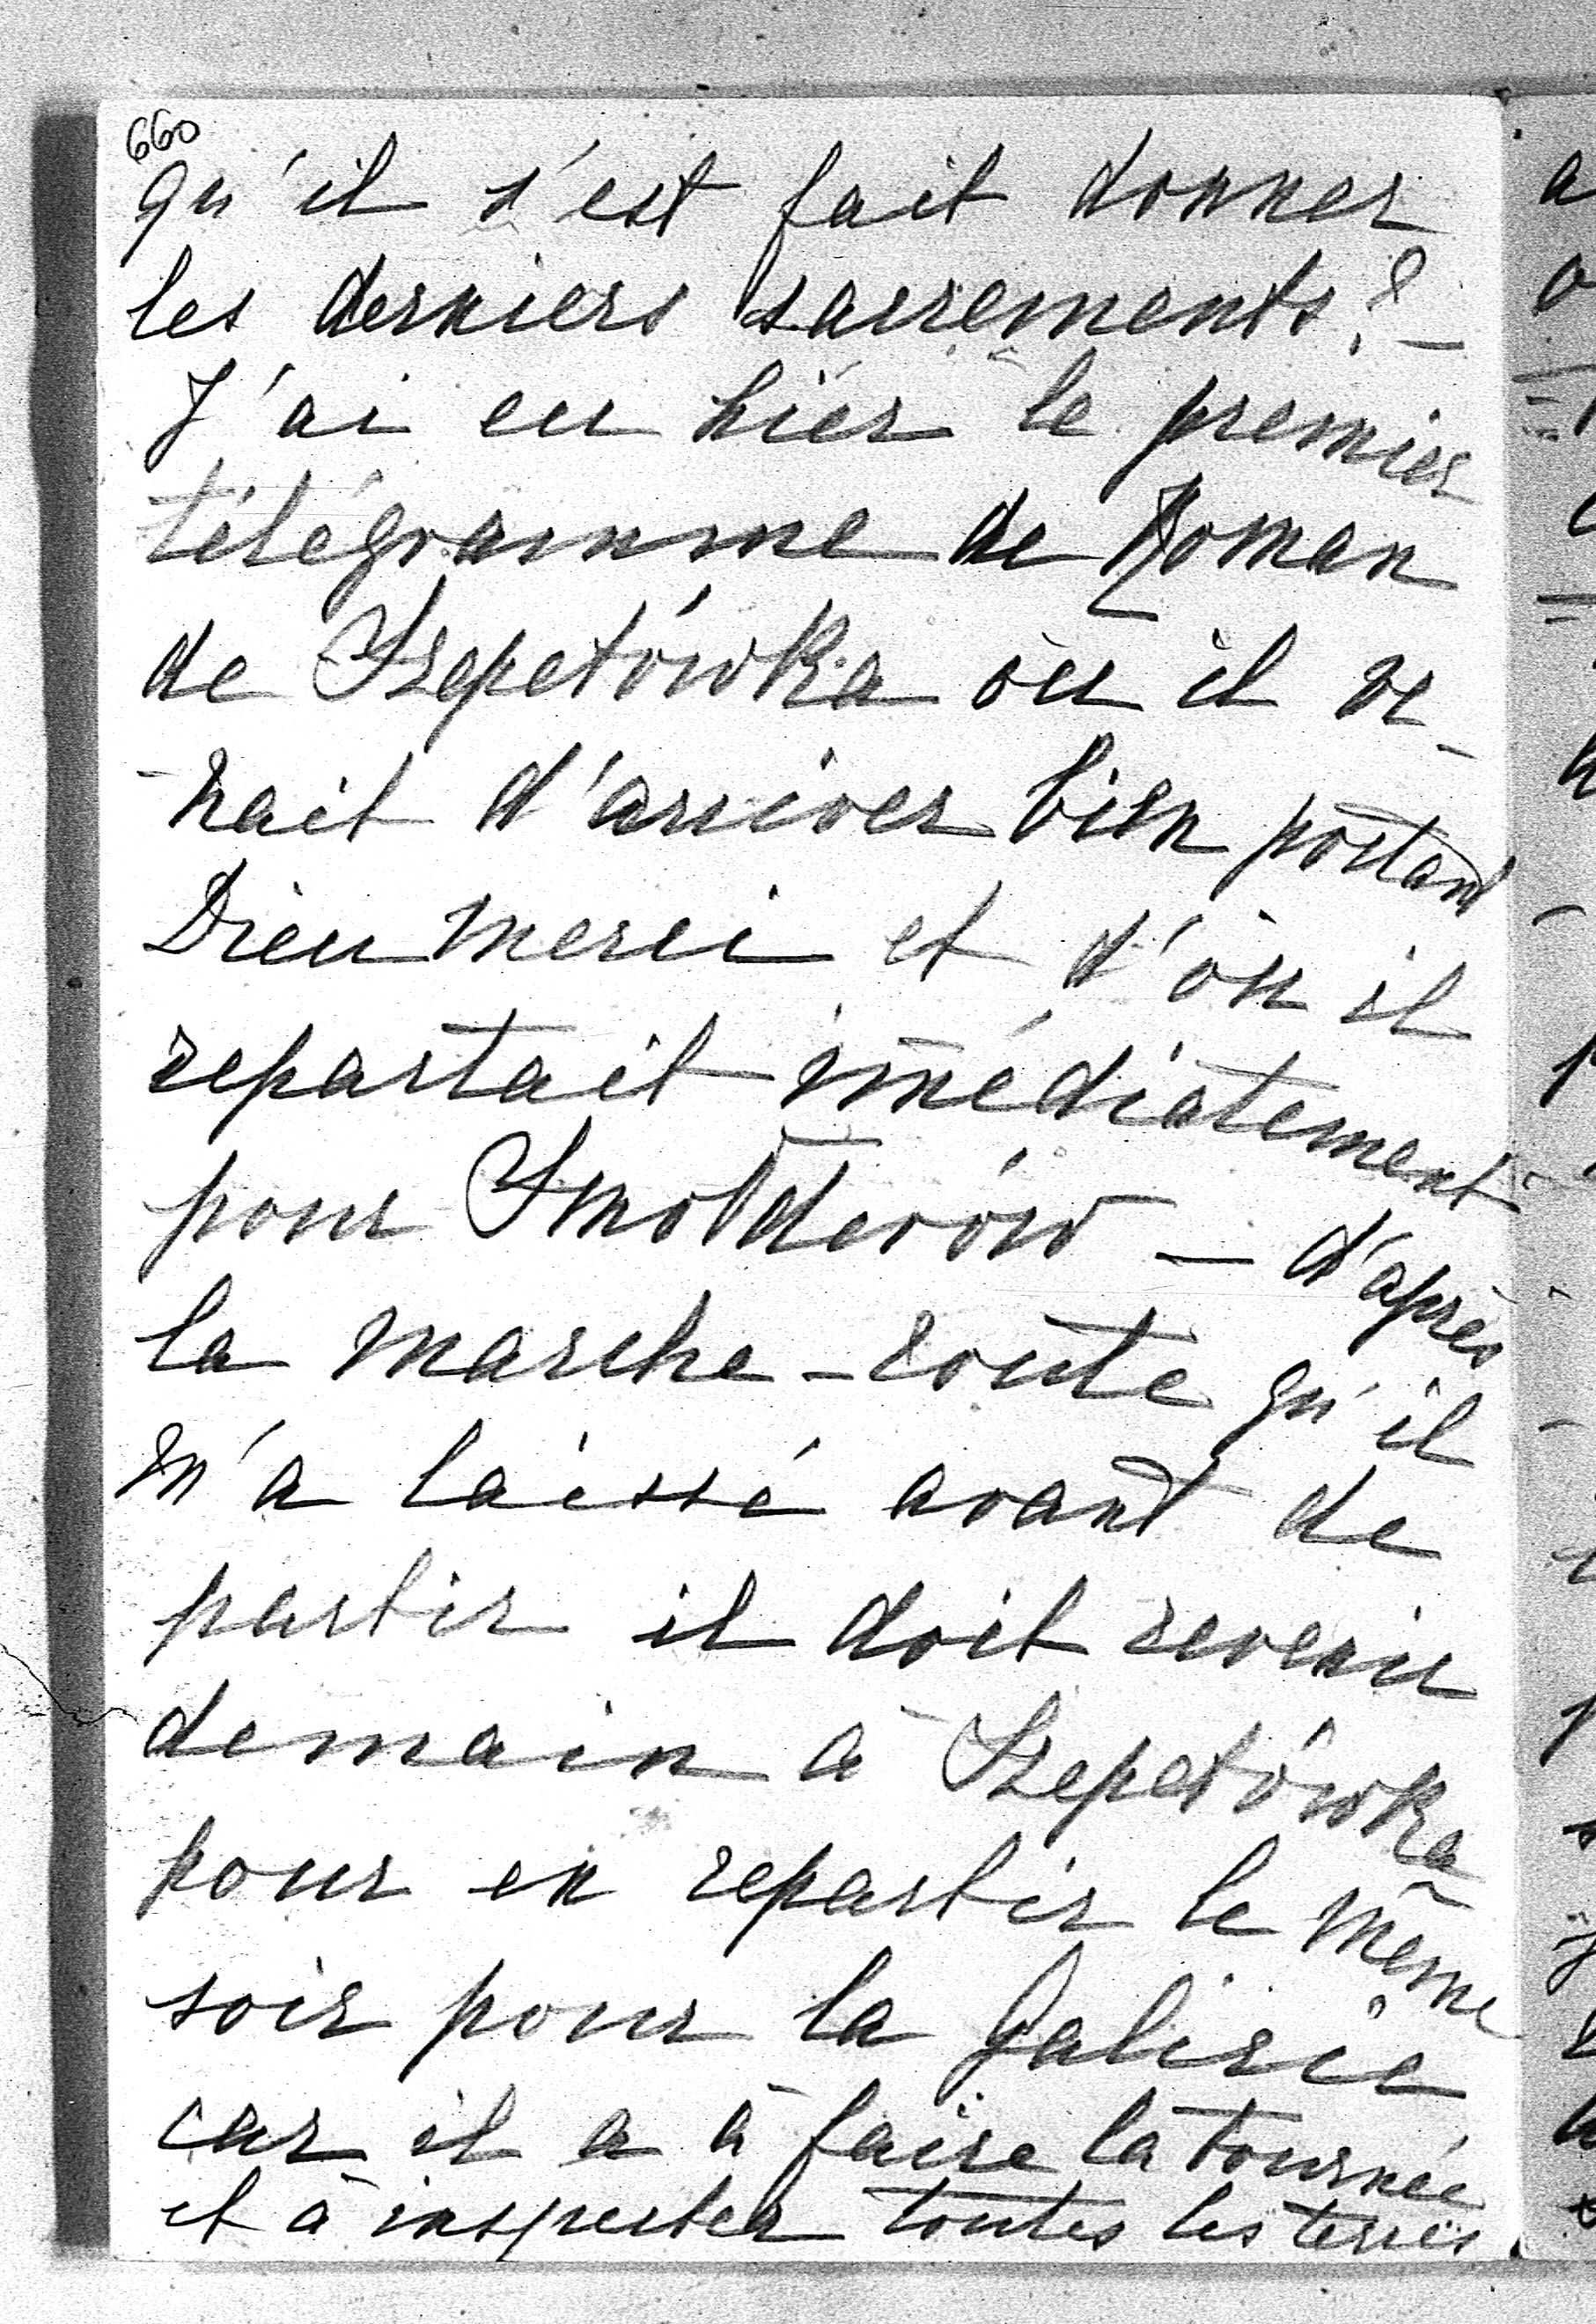 660
qu'il s'est fait donner
les derniers sacrements? —
J'ai eu hier le premier
télégramme de Roman
de Szepetówka où il ve-
-nait d'arriver bien portant
Dieu merci et d'où il
repartait imédiatement
pour Smołderów — d'après
la marche-route qu'il
m'a laissé avant de
partir il doit revenir
demain à Szepetówka
pour en repartir le même
soir pour la Galicie
car il a à faire la tournée
et à inspecter toutes les terres.